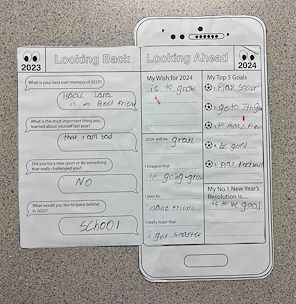 2023
Looking Back
What is your best ever memory of 2023?
Lara
is m Best Friend
What is the most important thing you
learned about yourself last year?
that I am bad
Did you try a new sport or do something
that really challenged you?
NO
What would you like to leave behind
in 2023?
SChOOl
Looking Ahead
2024
My Wish for 2024
is to grow
2024 will be
I imagine that
im going grow
I plan to
make Friends
I really hope that
i get smarter
My Top 5 Goals
Play socer
go to 7th
to make Frien
be good
Play football
My No.1 New Year's
Resolution is...
is to be good